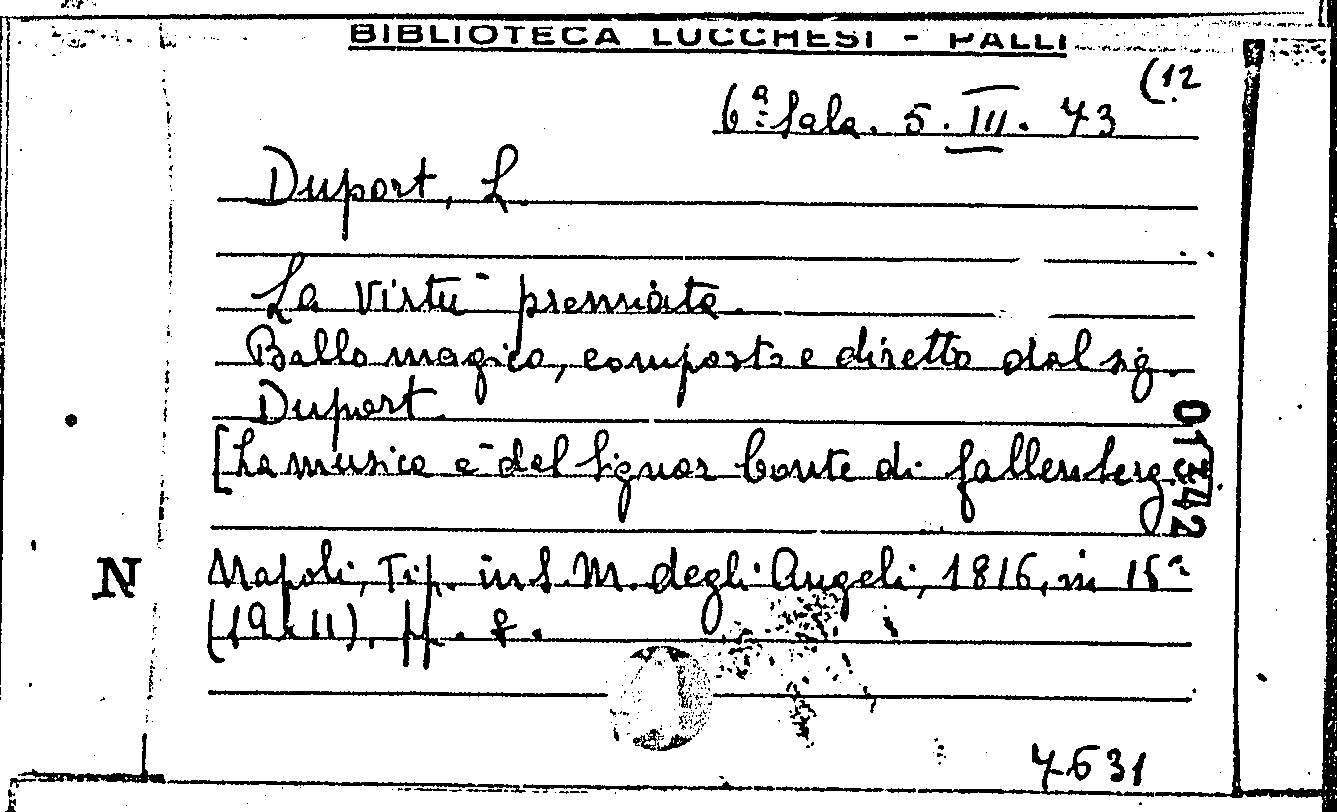 BIBLIOTECA LUCCHESI - PALLI
6ª Sala. 5. III. 73 (12
Duport, L.
La Virtù premiata.
Ballo magico, composto e diretto dal sig.
Duport.
[La musica è del Signor Conte di Gallenberg.
01342
N
Napoli, Tip. in S. M. degli Angeli, 1816, in 16º
(19x11), pp. 8.
7631